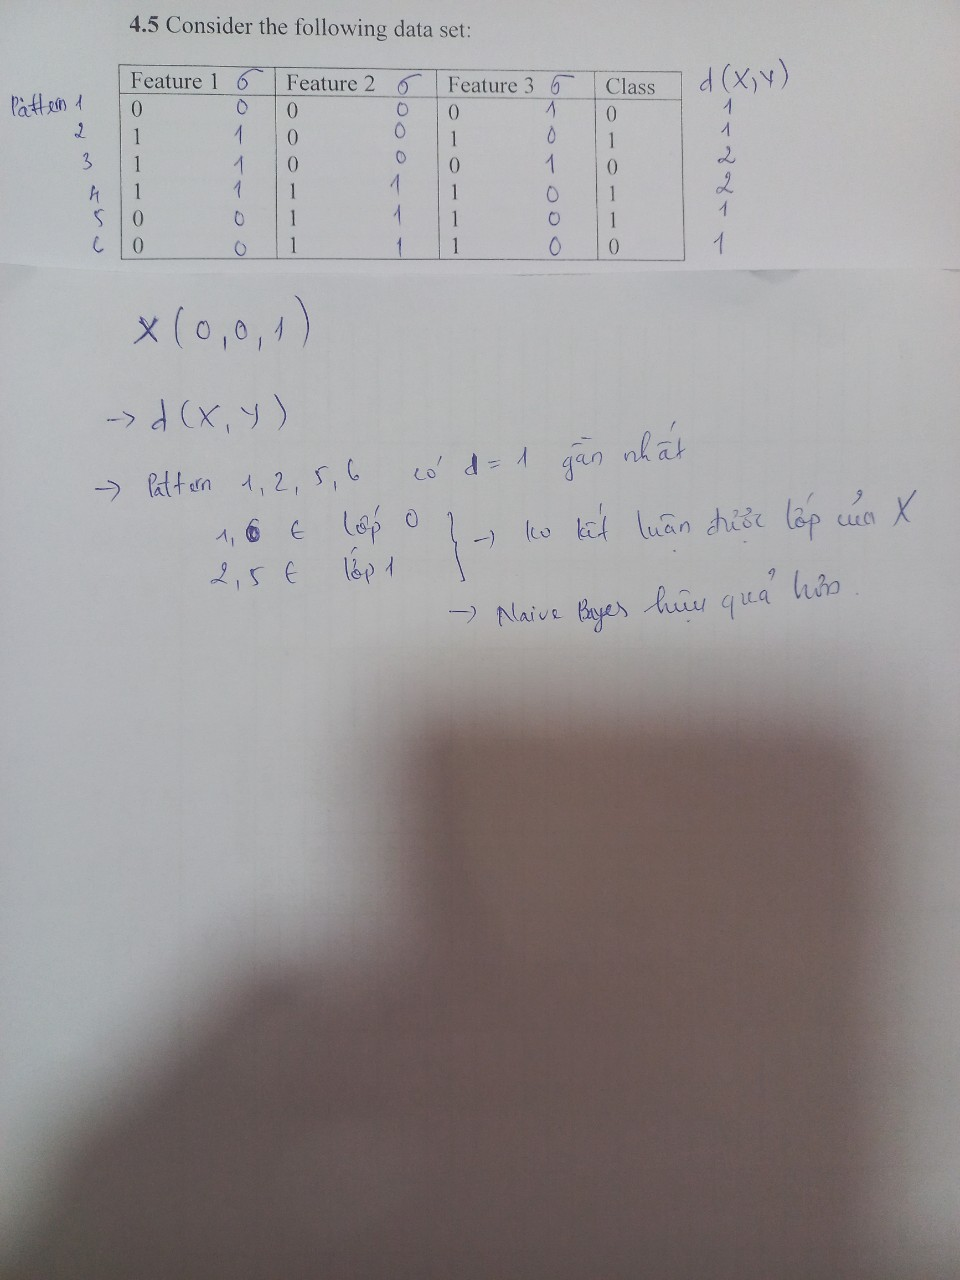 4.5 Consider the following data set:
Feature 1 σ Feature 2 σ Feature 3 σ Class d(X,Y)
Pattern 1 0 0 0 0 0 1 0 1
2 1 1 0 0 1 0 1 1
3 1 1 0 0 0 1 0 2
4 1 1 1 1 1 0 1 2
5 0 0 1 1 1 0 1 1
6 0 0 1 1 1 0 0 1
X(0,0,1)
→ d(X,Y)
→ Pattern 1, 2, 5, 6 có d = 1 gần nhất
1, 6 ∈ lớp 0 } → ko kết luận được lớp của X
2, 5 ∈ lớp 1
→ Naive Bayes hiệu quả hơn.